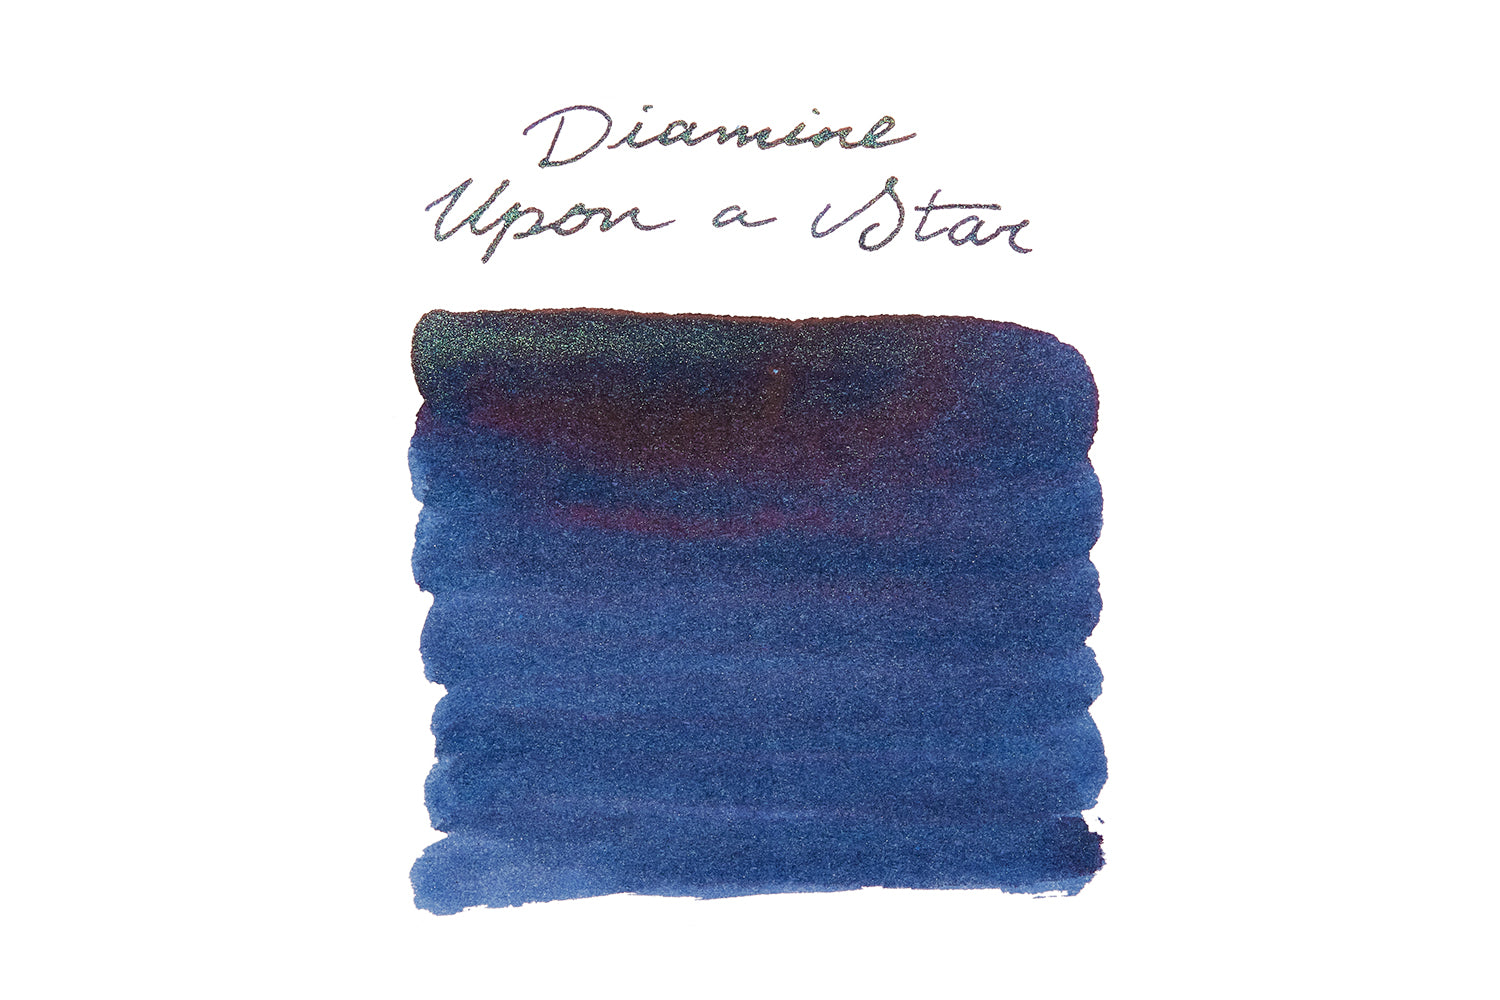 Diamine
Upon a Star